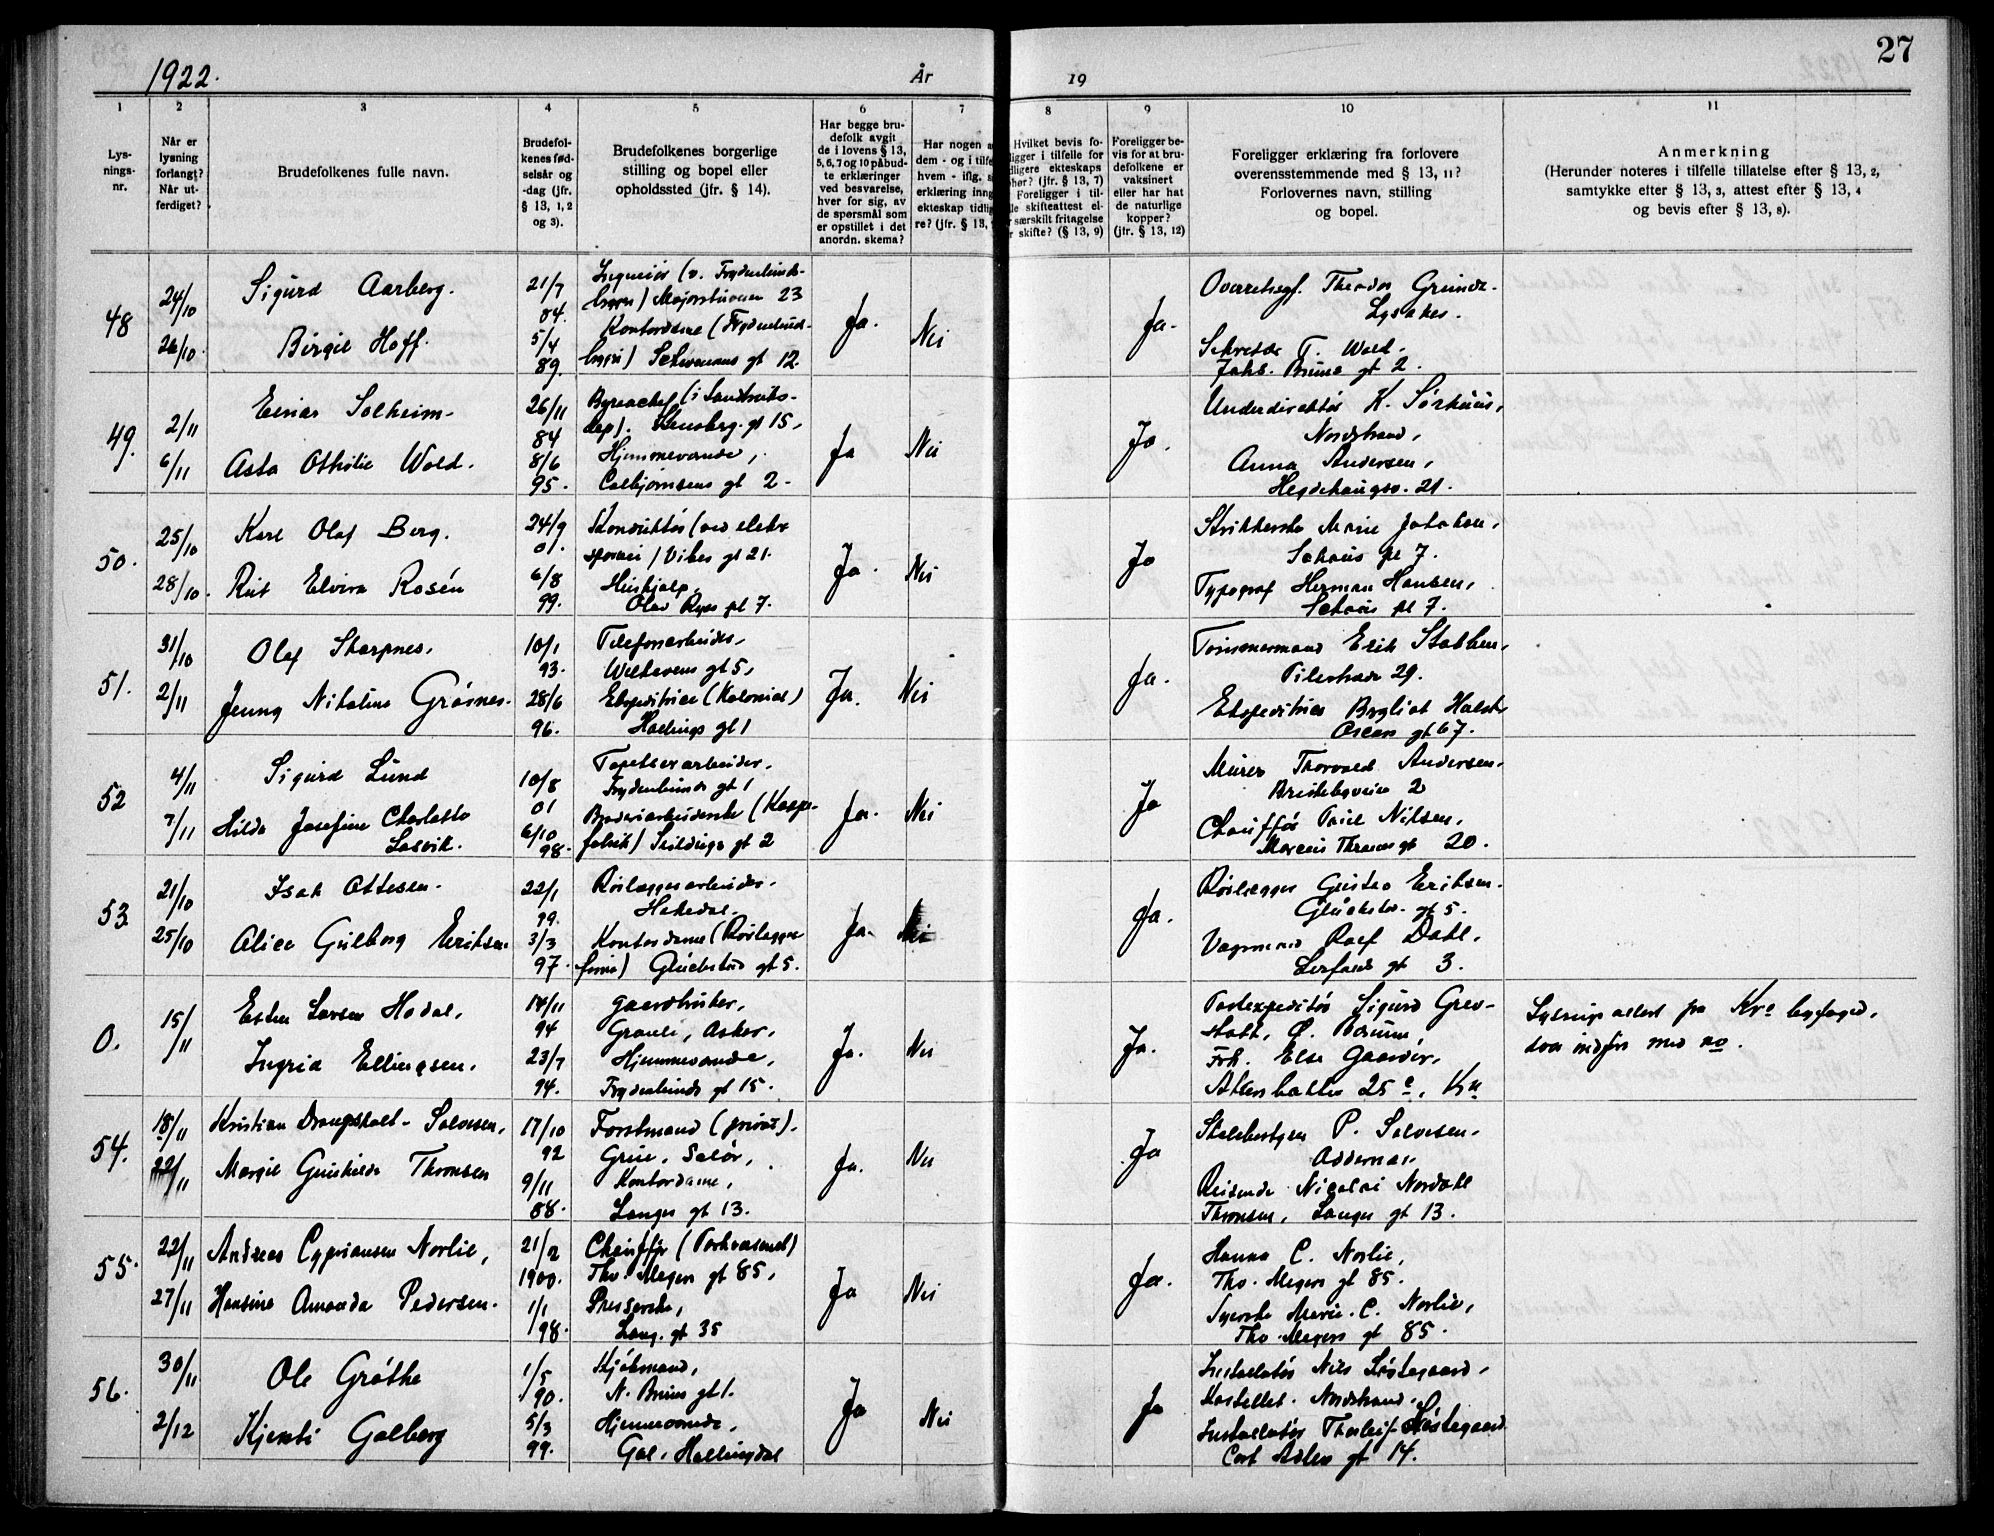 1922.
År
19
27
1
2
3
4
5
6
7
8
9
10
11
Lys-
nings-
nr.
Når er
lysning
forlangt?
Når ut-
ferdiget?
Brudefolkenes fulle navn.
Brudefol-
kenes fød-
selsår og
-dag (jfr.
§ 13, 1, 2
og 3).
Brudefolkenes borgerlige
stilling og bopel eller
opholdssted (jfr. § 14).
Har begge bru-
defolk avgit
de i lovens § 13,
5, 6, 7 og 10 påbud-
te erklæringer
ved besvarelse,
hver for sig, av
de spørsmål som
er opstillet i det
anordn. skema?
Har nogen
dem - og i tilfe
hvem - iflg.
erklæring inng
ekteskap tidlig
re? (jfr. § 13,
Hvilket bevis fo-
ligger i tilfelle for
dligere ekteskaps
hør? (jfr. § 13, 7)
Foreligger i til-
le skifteattest el-
r særskilt fritagelse
r skifte? (§ 13, 9)
Foreligger be-
vis for at bru-
defolkene er
vaksinert
eller har hat
de naturlige
kopper?
(jfr. § 13, 12)
Foreligger erklæring fra forlovere
overensstemmende med § 13, 11?
Forlovernes navn, stilling
og bopel.
Anmerkning
(Herunder noteres i tilfelle tillatelse efter § 13, 2,
samtykke efter § 13, 3, attest efter § 13, 4
og bevis efter § 13, 8).
48
24/10
26/10.
Sigurd Aarberg.
Birgit Hoff.
21/7
84.
5/4
89.
Ingeniør (v. Frydenlunds-
bryggeri) Majorstuveien 23
Kontordame (Frydenlund-
bryggeri) Schwensens gt 12.
Ja.
Nei
Ja.
Overretssagf. Theodor
Lysaker.
Sekretær T. Wold.
Jahs. Bruns gt 2.
49.
2/11
6/11
Einar Solheim
Asta Othilie Wold.
26/11
84
8/6
95.
Byraachef (i Landbruks-
dep). Stensberg. gt 15,
Hjemmeværende,
Colbjørnsens gt 2.
Ja
Nei
Ja.
Underdirektør K. Sørhuus,
Nordstrand,
Anna Andersen,
Hegdehaugsv. 21.
50.
25/10
28/10.
Karl Olaf Berg.
Rut Elvira Rosén
24/9
01.
6/8
99.
Konduktør (ved elektr
sporvei) Vibes gt 21.
Hushjelp,
Olav Ryes pl 7.
Ja.
Nei
Ja
Strikkerske Marie Jakobsen,
Schous pl 7.
Typograf Herman Hansen,
Schous pl 7.
51.
31/10
2/11
Olaf Skarpnes,
Jenny Nikoline Grósnes.
10/1
93.
28/6
96.
Telefonarbeider,
Welhavens gt 5,
Ekspeditrice (Kolonial)
Hallings gt 1
Ja.
Nei
Ja.
Tømmermand Erik Stabben,
Pilestræde 29.
Ekspeditrice Bergliot
Oscars gt 67.
52
4/11
7/11
Sigurd Lund
Hilda Josefine Charlotte
Solvik.
10/8
01
6/10
98.
Tapetserarbeider,
Frydenlunds gt 1
Broderiarbeiderske (Kappe-
fabrik) Schwensens gt 2
Ja.
Nei
Ja
Murer Thorvald Andersen.
2
Chauffør Paul Nilsen,
Marcus Thranes gt 20.
53
21/10
25/10
Isak Ottesen.
Alice Gulborg Eriksen
22/1
99.
3/3
97.
Rørlæggerarbeider.
Hakedal.
Kontordame (Rørlægger
firma) Glückstad gt 5.
Ja.
Nei
Ja.
Rørlægger Gustav Eriksen.
Glückstad. gt 5.
Vognmand Rolf Dahl,
gt 3.
0.
15/11
Esten Larsen Hadal,
Ingrid Ellingsen.
14/11
94
23/7
94.
Gaardbruker,
Asker,
Hjemmeværende,
Frydenlunds gt 15.
Ja.
Nei
Ja.
Postexpeditør Sigurd Grev-
stad, Ø. Bærum,
Frk. Else Gaarder,
Akersbakken 25 c, Kra
Lysningsattest fra Kra byfoged,
der indført med no.
54.
18/11
22/11
Kristian Drangsholt-Salvesen,
Margit Gunhilda Thronsen
17/10
92
9/11
88.
Forstmand (privat).
Grue, Solør,
Kontordame,
Langes gt 13.
Ja.
Nei
Ja
Skibsbestyrer P. Salvesen.
Oddernes
Reisende Nicolai Nordahl
Thronsen, Langes gt 13.
55.
22/11
27/11
Andreas Cypriansen Norlie,
Hansine Amanda Pedersen.
21/2
1900.
1/1
98.
Chauffør (Postvæsenet)
Tho. Meyers gt 85,
Presserske,
Lang. gt 35
Ja
Nei
Ja.
Hanna C. Norlie,
Tho. Meyers gt 85.
Syerske Marie C. Norlie,
Tho. Meyers gt 85.
56.
30/11
2/12
Ole Grøthe
Kjersti Golberg
1/5
90.
5/3
99.
Kjøbmand,
N. Bruns gt 1.
Hjemmeværende,
Gol, Hallingdal
Ja
Nei
Ja
Installatør Nils Løstegaard,
Kastellet. Nordstrand,
Installatør Thorleif Løstegaard
Cort Adlers gt 14.